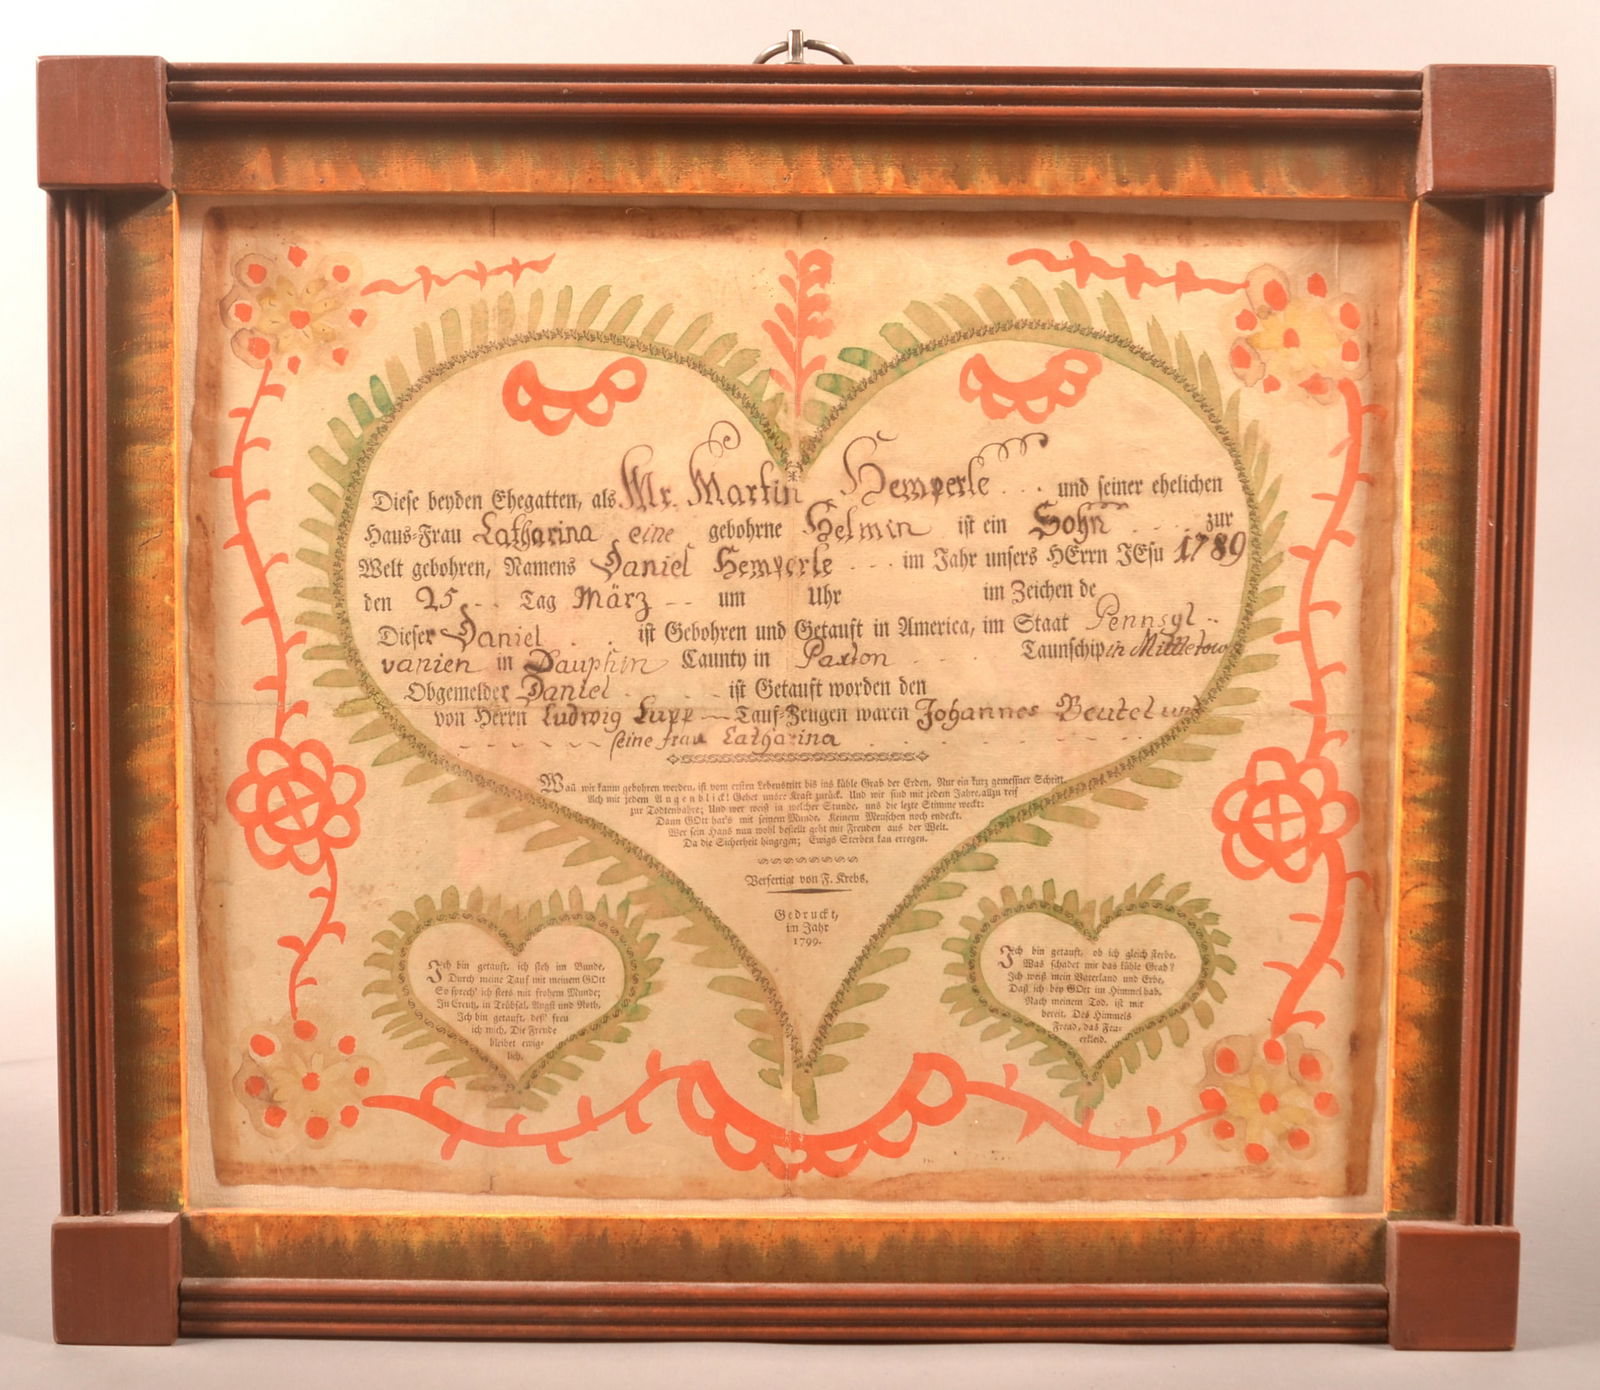 Diese beyden Ehegatten, als Mr. Martin Hemperle und seiner ehelichen
Haus-Frau Catharina eine gebohrne Helmin ist ein Sohn zur
Welt gebohren, Namens Daniel Hemperle im Jahr unsers HErrn JEsu 1789
den 25 Tag März um Uhr im Zeichen de
Dieser Daniel ist Gebohren und Getauft in America, im Staat Pennsyl
vanien in Dauphin Caunty in Paxton Taunschip in Midletow
Obgemelder Daniel ist Getauft worden den
von Herrn Ludwig Lupp Tauf-Zeugen waren Johannes Beutel und
seine frau Catharina
Wañ wir kaum gebohren werden, ist vom ersten Lebenstritt bis ins kühle Grab der Erden, Nur ein kurz gemeßner Schritt.
Ach mit jedem Augenblick! Gehet unsre Kraft zurück, Und wir sind mit jedem Jahre, allzu reif
zur Todtenbahre; Und wer weiß in welcher Stunde, uns die lezte Stimme weckt:
Dann GOtt hat's mit seinem Munde, Keinem Menschen noch endeckt.
Wer sein Haus nun wohl bestellt geht mit Freuden aus der Welt.
Da die Sicherheit hingegen; Ewigs Sterben kan erregen.
Verfertigt von F. Krebs.
Gedruckt,
im Jahr
1799.
Ich bin getauft, ich steh im Bunde,
Durch meine Tauf mit meinem GOtt
So sprech' ich stets mit frohem Munde;
In Creutz, in Trübsal, Angst und Noth,
Ich bin getauft, deß' freu
ich mich, Die Freude
bleibet ewig-
lich.
Ich bin getauft, ob ich gleich sterbe,
Was schadet mir das kühle Grab?
Ich weiß mein Vaterland und Erbe,
Daß ich bey GOtt im Himmel hab,
Nach meinem Tod, ist mir
bereit, Des Himmels
Freud, das Fea-
erkleid.